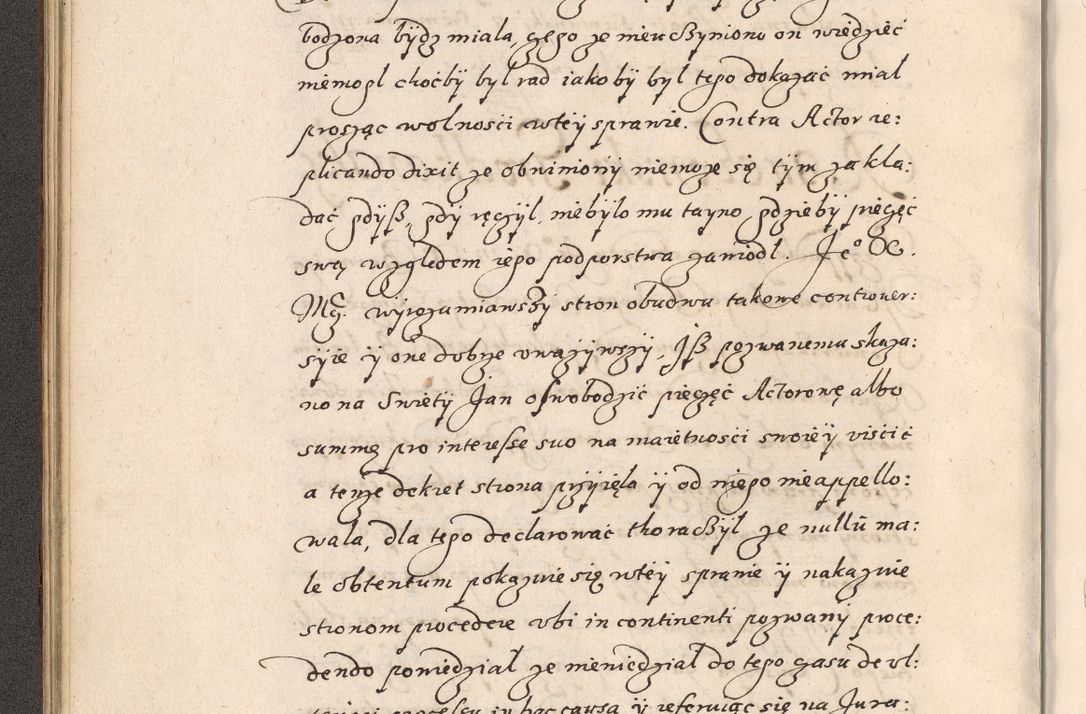 bodzona bÿdz miala, czego ze nieuczÿniono on wiedziec
niemogl choćbÿ bÿl rad iakobÿ bÿl tego dokazać mial
prosząc wolnosci wteÿ sprawie. Contra Actor re:
plicando dixit ze obwinionÿ niemoze się tÿm zakla:
dać gdÿß, gdÿ ręczÿl, niebÿlo mu tayno gdziebÿ pieczęć
swą względem iego podporstwa zawiodl. Je° &.
Mcz. wÿrozumiawszÿ stron obudwu takowe controuer:
sÿie ÿ one dobrze vwazÿwszÿ, Jß pozwanemu skaza:
no na Swiętÿ Jan oswobodzić pieczęć Actorowę albo
summę pro interesse suo na maietnosci swoieÿ visćić
a tenze dekret strona przÿięla ÿ od niego nieappello:
wala, dla tego declarować tho raczÿl ze nullũ ma:
le obtentum pokazuie się wteÿ sprawie ÿ nakazuie
stronom procedere vbi in continenti pozwanÿ proce:
dendo powiedzial ze niewiedzial do tego czasu de vl:
processu in hac causa ÿ referuiąc się na Jura: